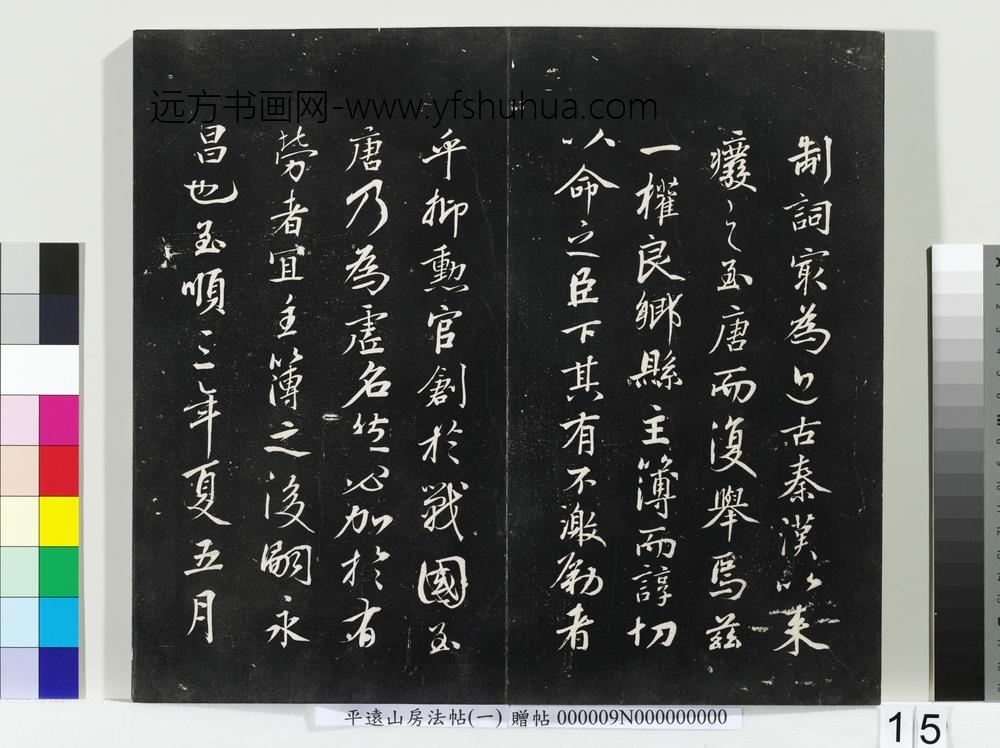 远方书画网-www.yfshuhua.com
制詞㝡為近古秦漢以来
癈之至唐而復舉焉兹
一擢良鄉縣主簿而諄切
以命之臣下其有不激勵者
乎抑勳官創於戰國至
唐乃為虛名然必加於有
勞者宜主簿之後嗣永
昌也至順三年夏五月
平遠山房法帖(一) 贈帖 000009N000000000
15